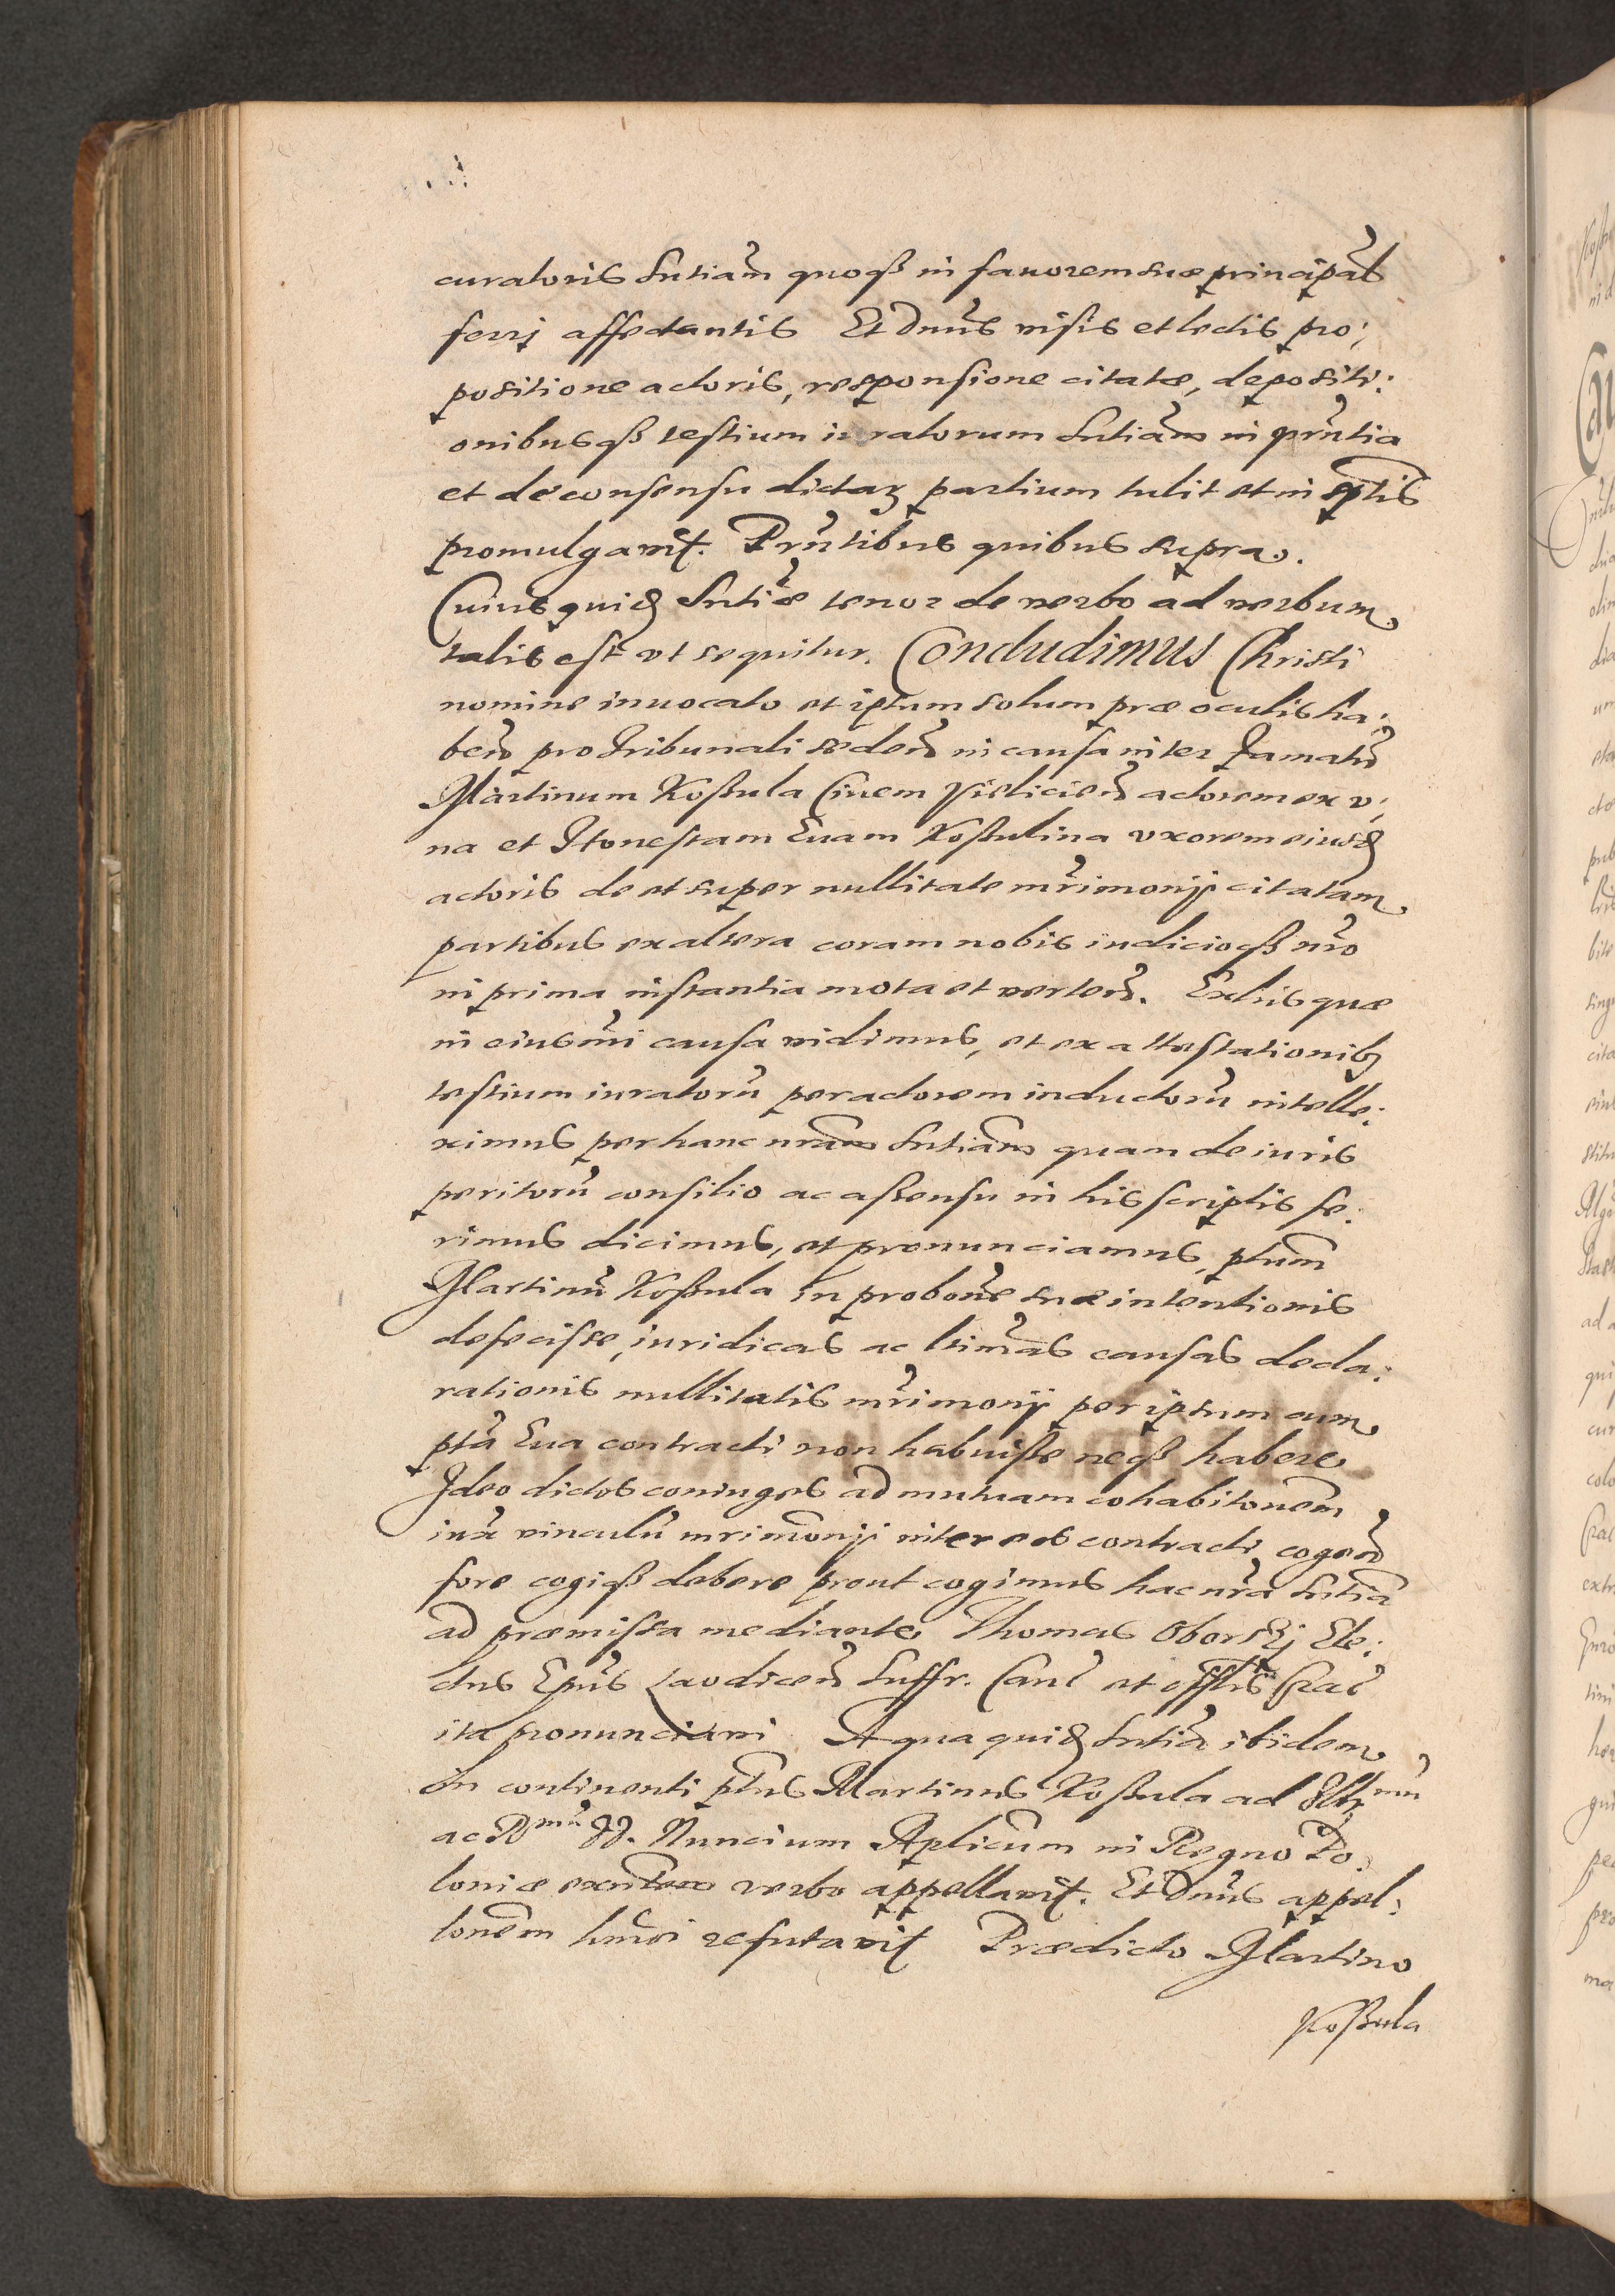 curatoris Sntiam̃ quoqß in fauorem suæ principał
ferrj affectantis Et Dnus̃ visis et lectis pro;
positione actoris, responsione citatæ, depositi:
onibusqß testium iuratorum Sntiam̃ in prñtia
et de consensu dictaꝝ partium tulit et in sp̃tis
promulgavit. Prñtibus quibus supra.
Cuius quiđ Snti̇̃æ tenor de verbo ad verbum
talis est vt sequitur. Concludimus Christi
nomine inuocato et ip̃tum solum præ oculis ha;
beñ pro Tribunali sedeñ in causa inter Famatũ
Martinum Koßula Ciuem Visliciẽn actorem ex v;
na et Honestam Euam Koßulina vxorem eiusđ
actoris de et super nullitate mr̃imonij citatam
partibus ex altera coram nobis iudicioqß nrõ
in prima instantia mota et verteñ. Ex his quæ
in eiusm̃i causa vidimus, et ex attestationibꝫ
testium iuratorũ per actorem inductorũ intelle:
ximus per hanc nram̃ Sntiam̃ quam de iuris
peritorũ consilio ac aßensu in his scriptis fe:
rimus dicimus, et pronunciamus, pt̃um
Martinũ Koßula in probonẽ suæ intentionis
defecisse, iuridicas ac ltimas̃ causas decla:
rationis nullitatis mr̃imonij per ip̃tum cum
pt̃a Eua contracti non habuiße neqß habere
Ideo dictos coniuges ad mutuam cohabitonem̃
iux̃ vinculũ mrimoñij inter eos contracti cogeñ
fore cogiqß debere prout cogimus hac nrã Sntiã
ad præmissa mediante Thomas Oborskj Ele:
ctus Epũs Laodiceñ Suffr. Can̄ et offlis̃ Crac̃
ita pronunciavi A qua quiđ Sntiã ibidem
In continenti pt̃us Martinus Koßula ad Illr̃mũ
ac Rmũ DD. Nuncium Aplicum̃ in Regno Po:
loniæ exñtem verbo appellavit. Et Dñus appel:
lonem̃ hmõi refutavit Prædicto Martino
Koßula